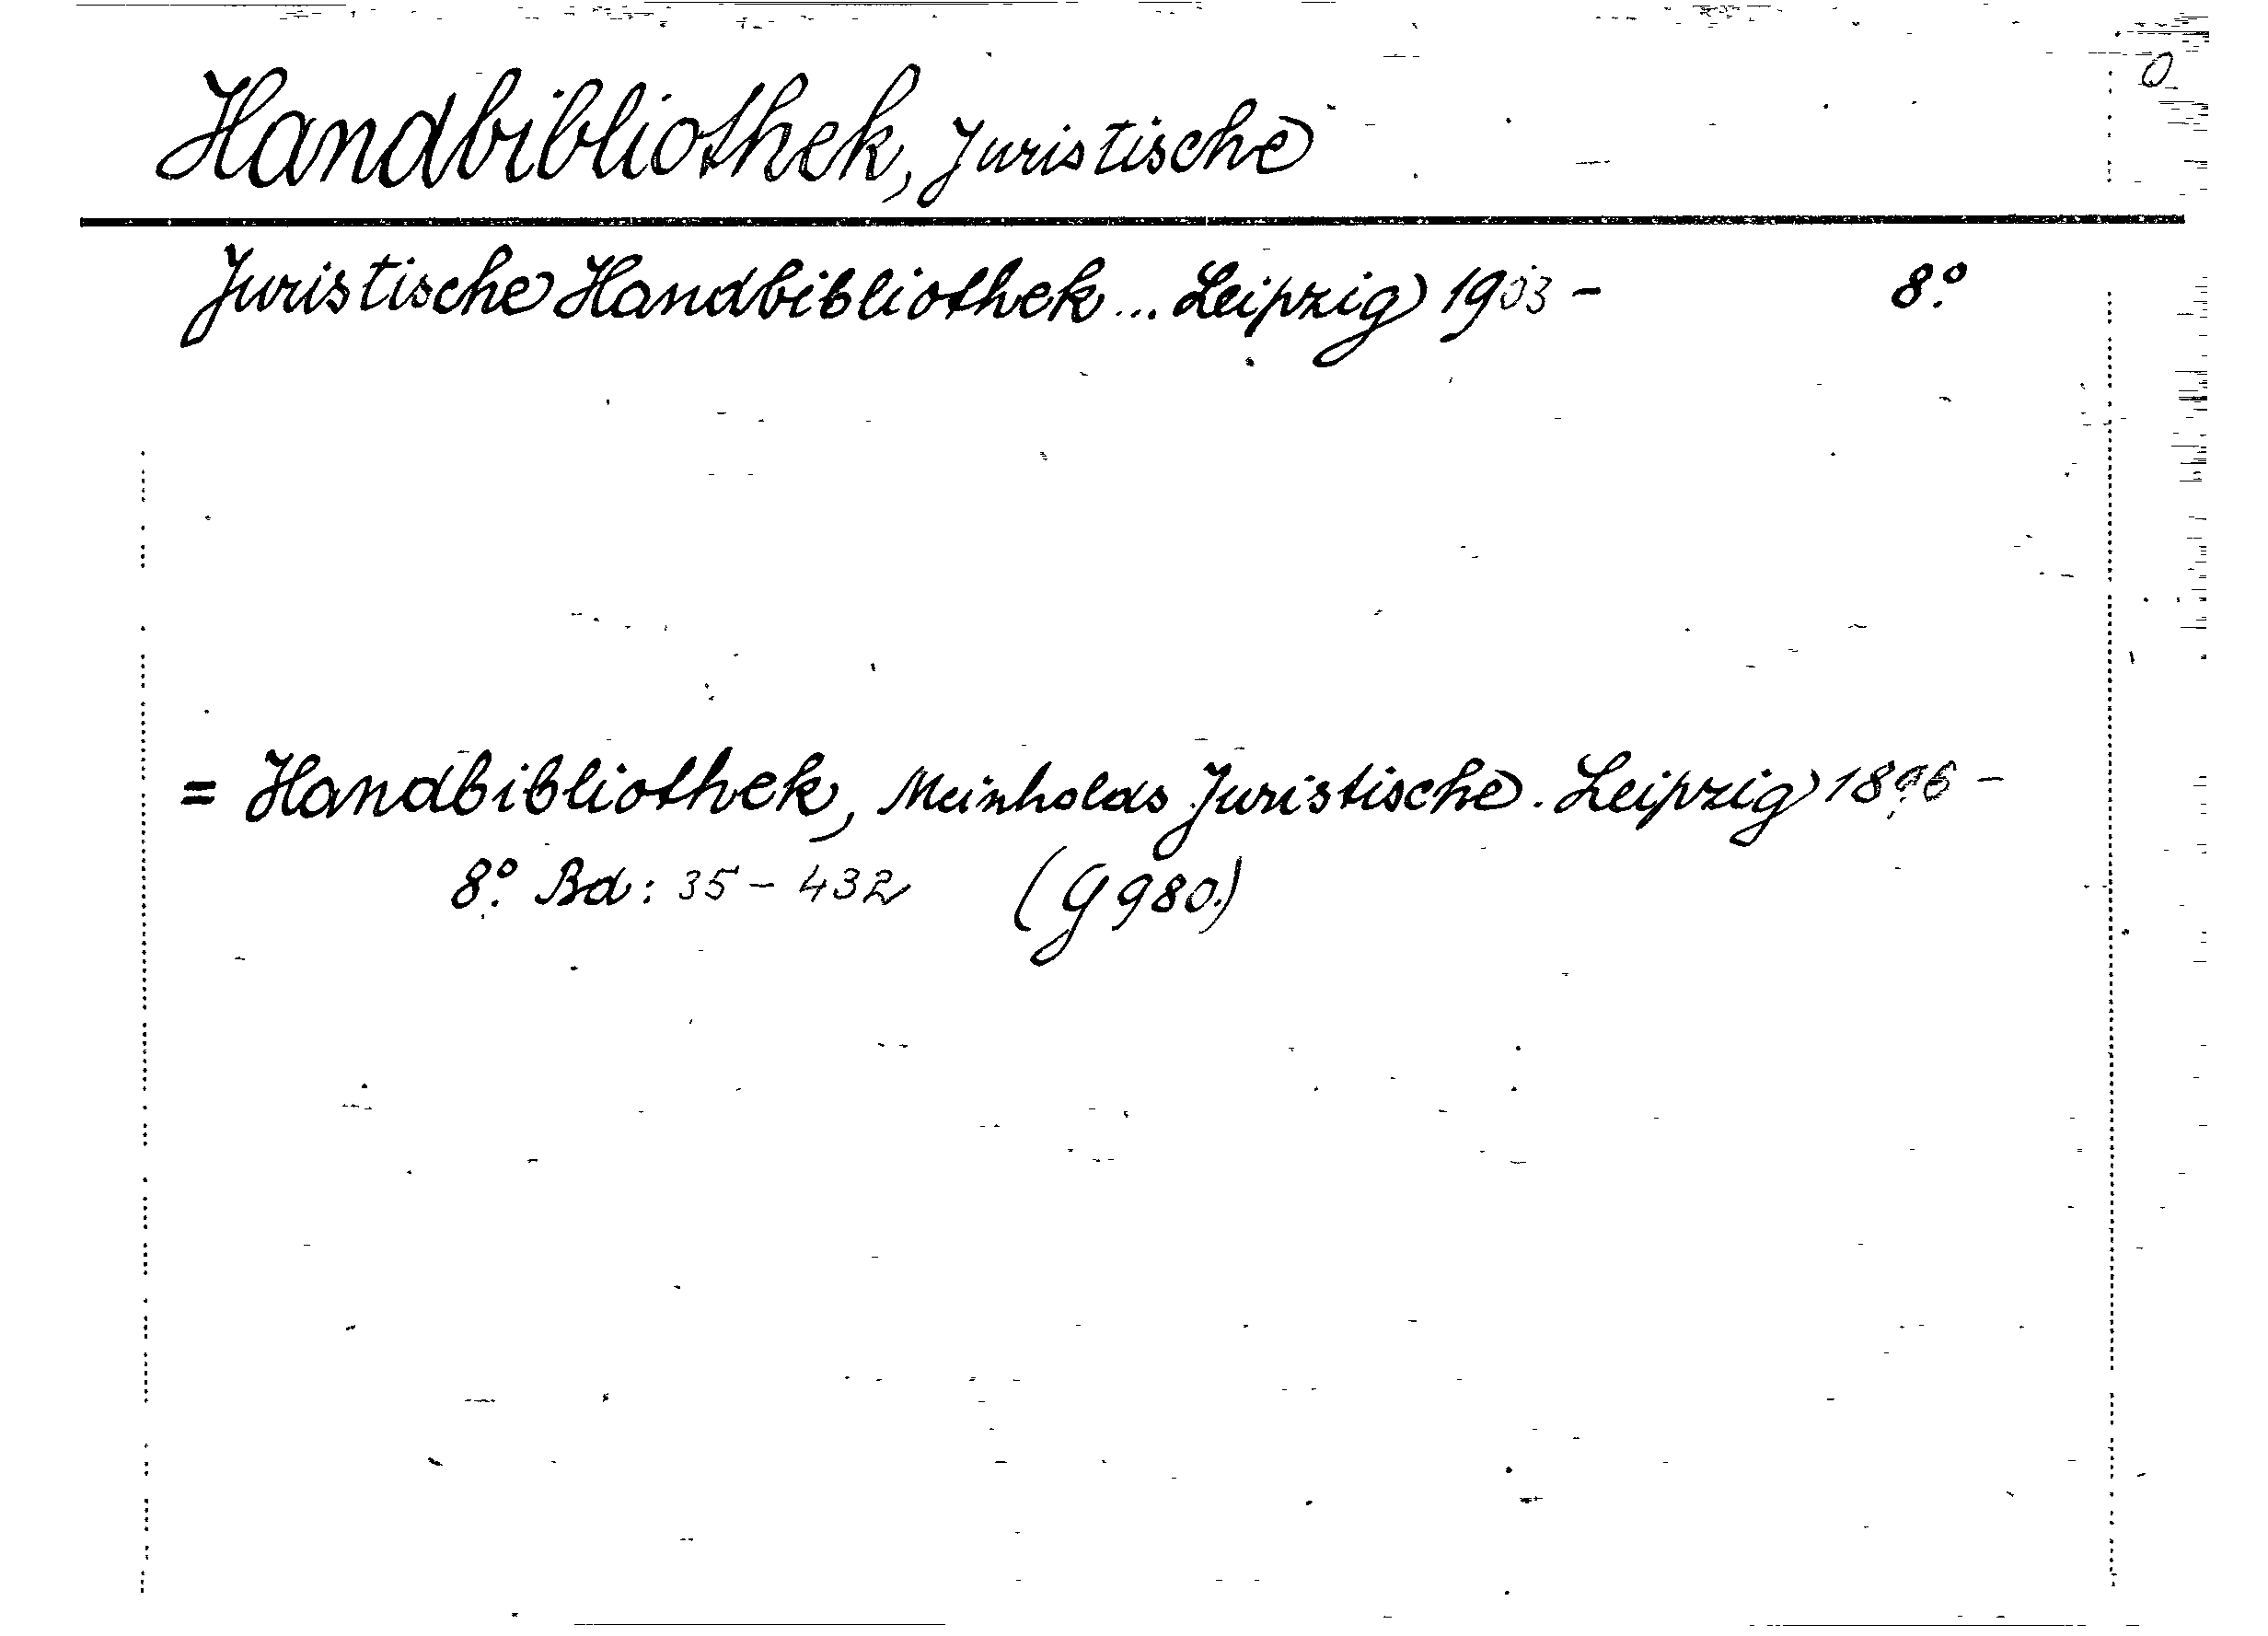 O
Handbibliothek, Juristische
Juristische Handbibliothek... Leipzig 1903 - 8.°
= Handbibliothek, Meinholds Juristische. Leipzig 1896 -
8.° Bd: 35 - 432 (G 980.)